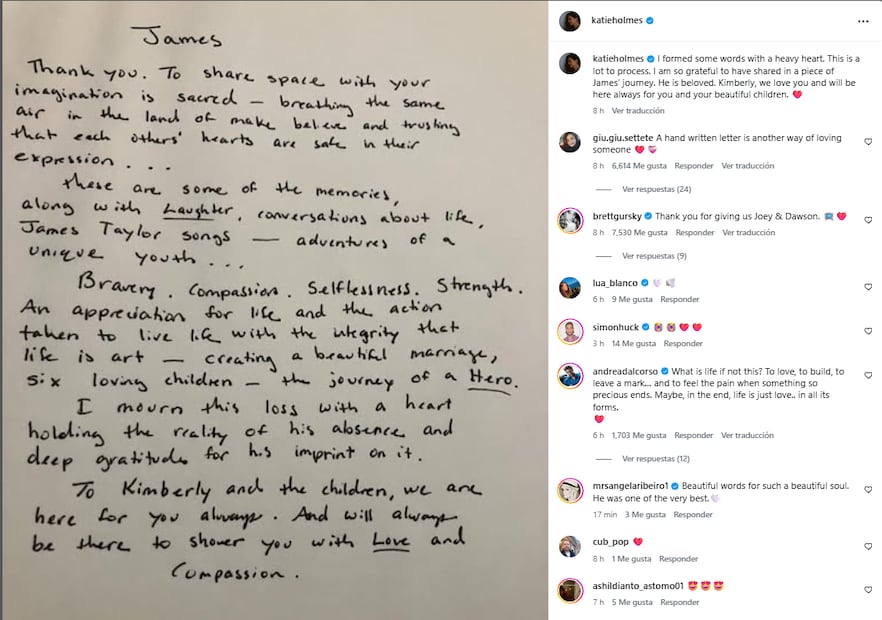 James
Thank you. To share space with your
imagination is sacred — breathing the same
air in the land of make believe and trusting
that each others' hearts are safe in their
expression . . .
these are some of the memories,
along with Laughter, conversations about life,
James Taylor songs — adventures of a
unique youth . . .
Bravery. Compassion. Selflessness. Strength.
An appreciation for life and the action
taken to live life with the integrity that
life is art — creating a beautiful marriage,
six loving children — the journey of a Hero.
I mourn this loss with a heart
holding the reality of his absence and
deep gratitude for his imprint on it.
To Kimberly and the children, we are
here for you always. And will always
be there to shower you with Love and
Compassion.
katieholmes
katieholmes I formed some words with a heavy heart. This is a
lot to process. I am so grateful to have shared in a piece of
James' journey. He is beloved. Kimberly, we love you and will be
here always for you and your beautiful children. ❤️
8 h Ver traducción
giu.giu.settete A hand written letter is another way of loving
someone ❤️💝
8 h 6,614 Me gusta Responder Ver traducción
Ver respuestas (24)
brettgursky Thank you for giving us Joey & Dawson. ❤️
8 h 7,530 Me gusta Responder Ver traducción
Ver respuestas (9)
lua_blanco
6 h 9 Me gusta Responder
simonhuck ❤️❤️
3 h 14 Me gusta Responder
andreadalcorso What is life if not this? To love, to build, to
leave a mark... and to feel the pain when something so
precious ends. Maybe, in the end, life is just love.. in all its
forms.
❤️
6 h 1,703 Me gusta Responder Ver traducción
Ver respuestas (12)
mrsangelaribeiro1 Beautiful words for such a beautiful soul.
He was one of the very best.
17 min 3 Me gusta Responder
cub_pop ❤️
8 h 1 Me gusta Responder
ashildianto_astomo01 😍😍😍
7 h 5 Me gusta Responder